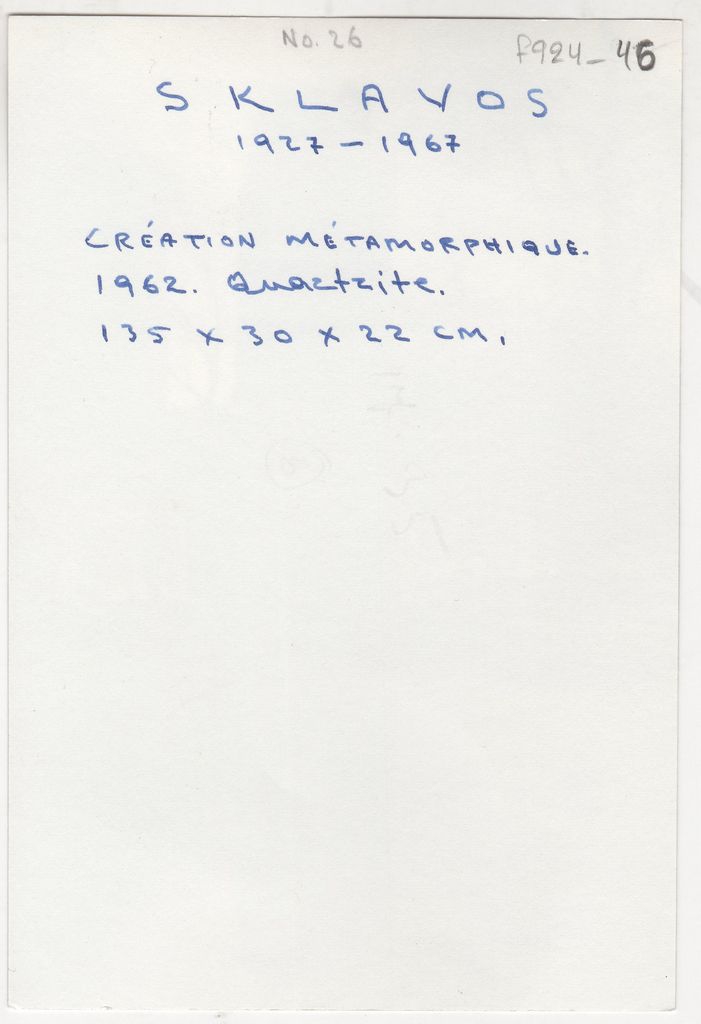 No. 26
F924-46
SKLAVOS
1927 - 1967
CRÉATION MÉTAMORPHIQUE.
1962. Quartzite.
135 x 30 x 22 CM.